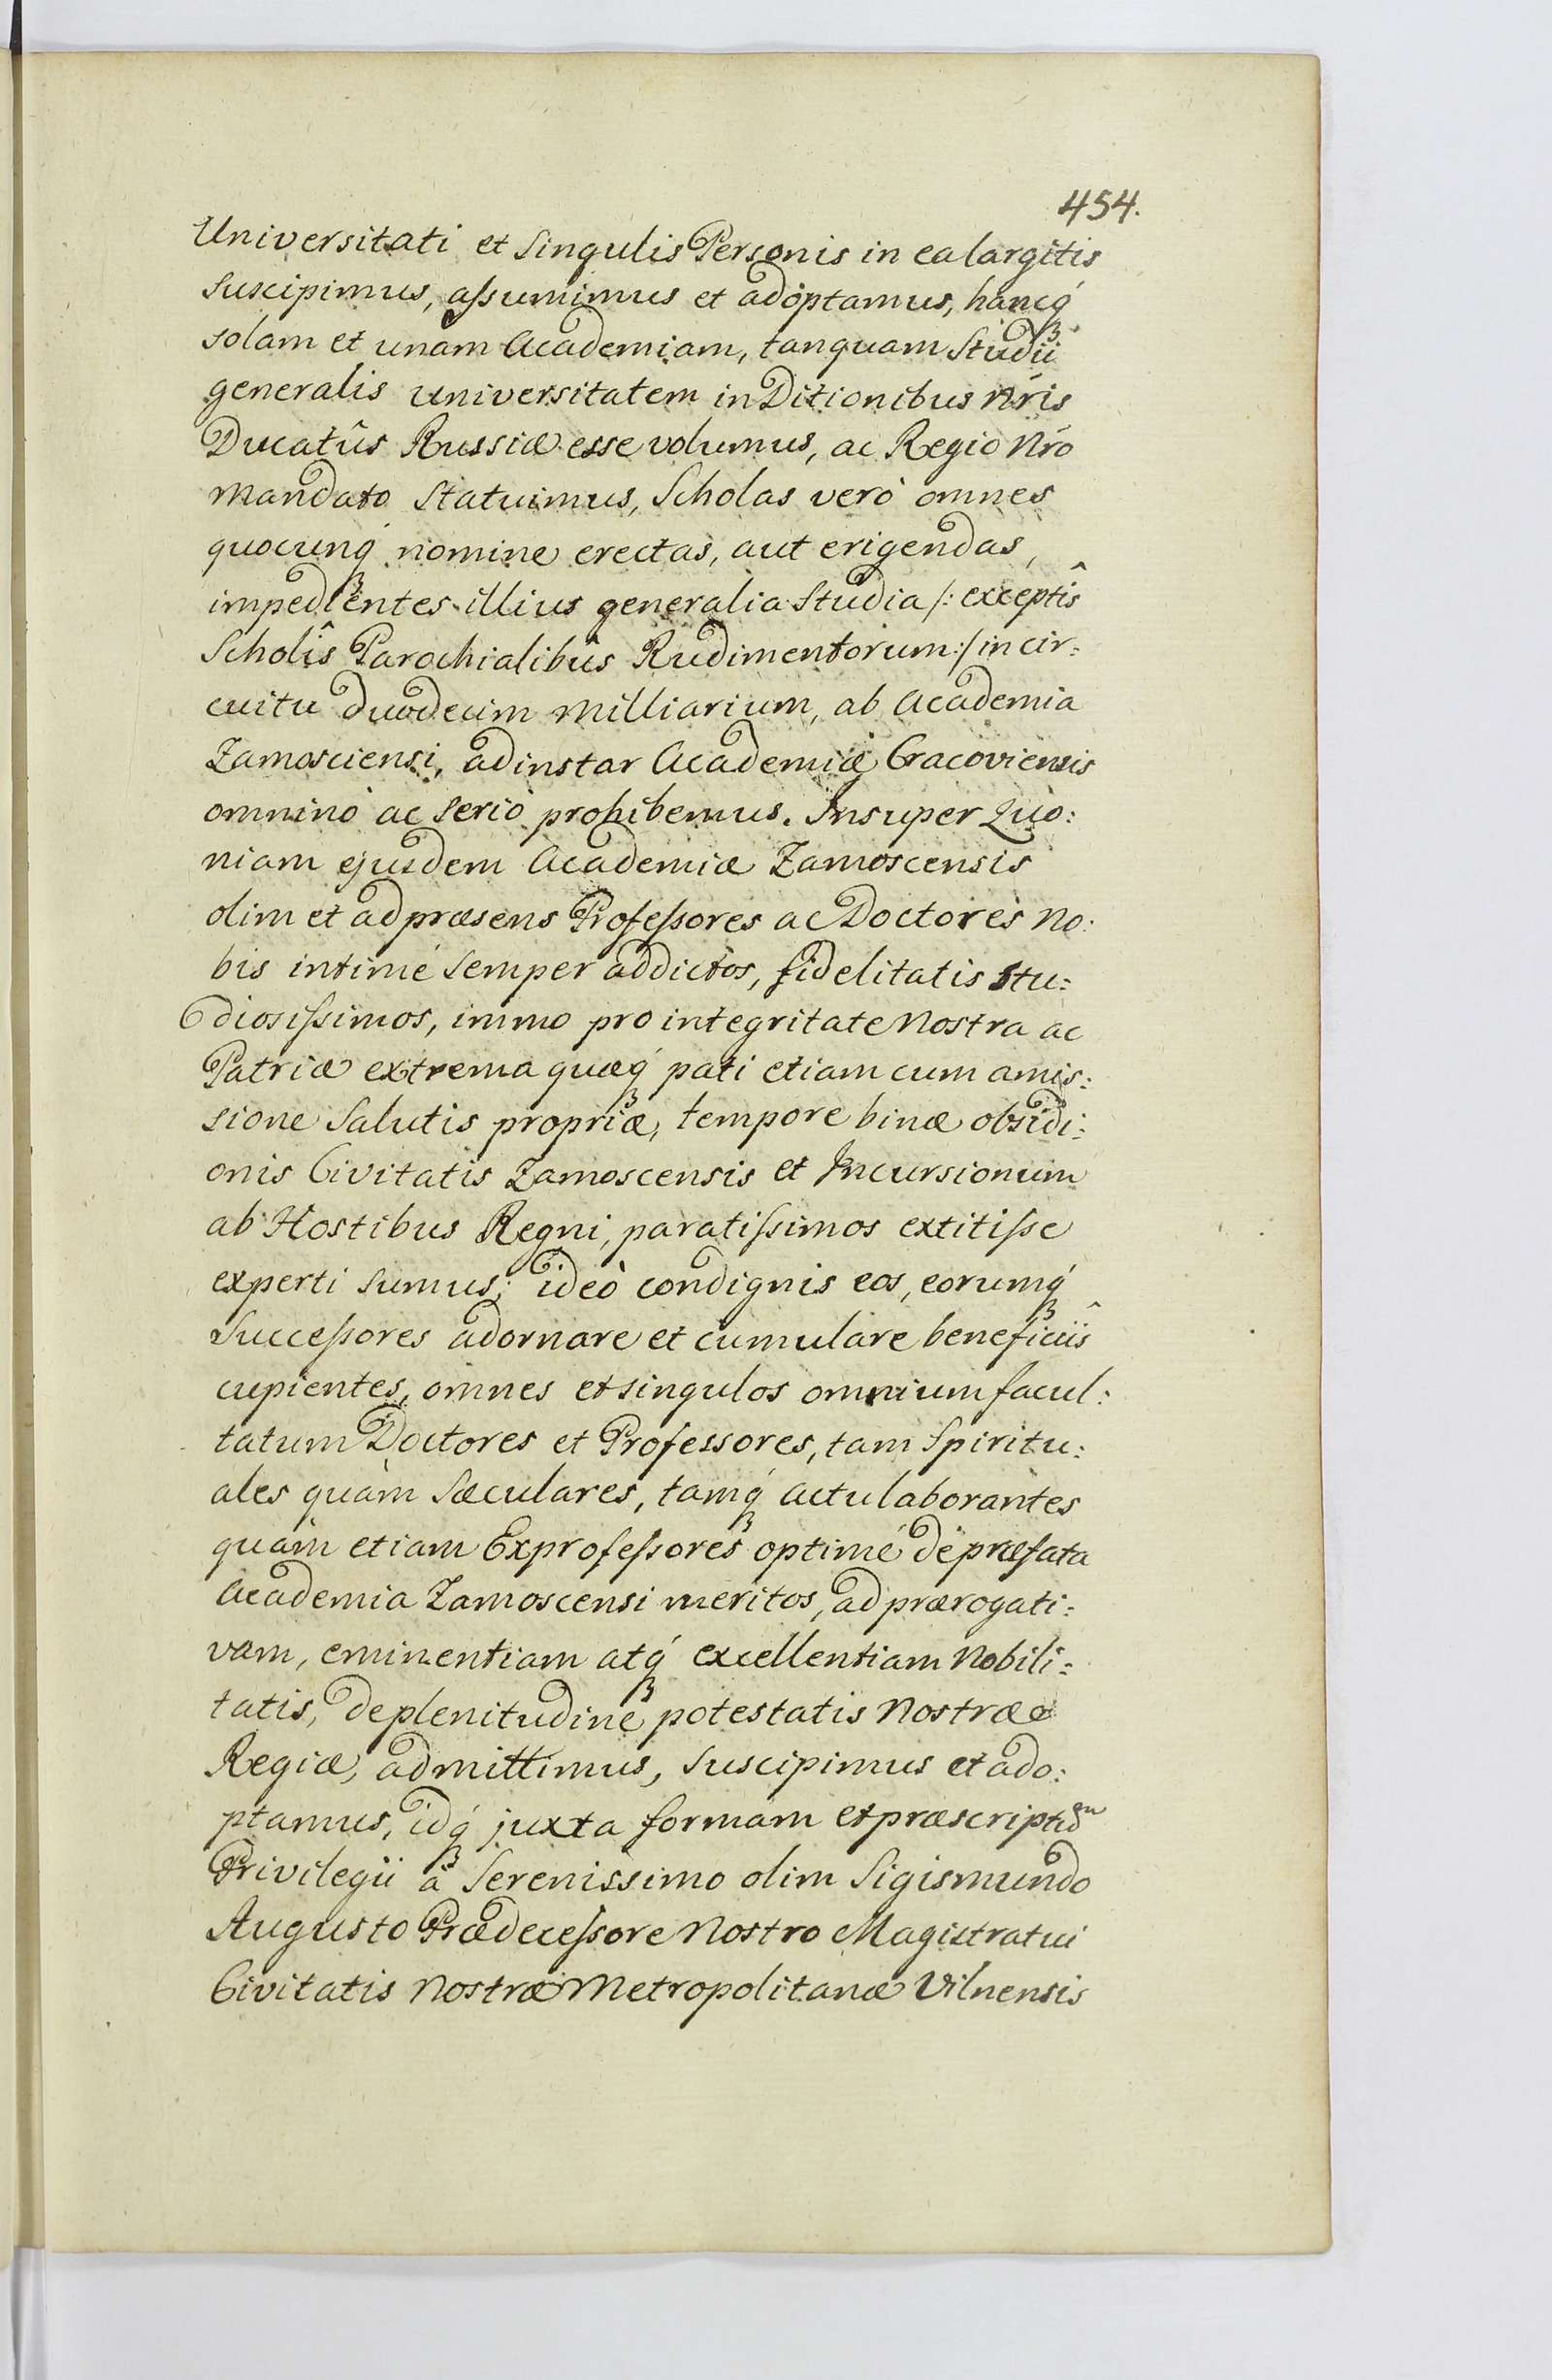 454.
Universitati et Singulis Personis in ea largitis
Suscipimus, aſsumimus et adoptamus, hancq́
solam et unam Academiam, tanquam Studii
generalis Universitatem in Ditionibus Nr̃is
Ducatûs Russiæ esse volumus, ac Regio Nr̃o
Mandato Statuimus, Scholas verò omnes
quocunq́ nomine erectas, aut erigendas,
impedientes illius generalia Studia /: exceptîs
Scholîs Parochialibûs Rudimentorum :/ in cir:
cuitu duodecim Milliarium, ab Academia
Zamosciensi, ad instar Academiæ Cracoviensis
omninò ac Seriò prohibemus. Insuper Quo:
niam ejusdem Academiæ Zamoscensis
olim et ad præsens Profeſsores ac Doctores No:
bis intimé Semper addictos, fidelitatis Stu:
dioſiſsimos, immo pro integritate Nostra ac
Patriæ extrema quæq́ pati etiam cum amis:
sione Salutis propriæ, tempore binæ obsidi:
onis Civitatis Zamoscensis et Incursionum
ab Hostibus Regni, paratiſsimos extitiſse
experti Sumus; ideò condignis eos, eorumq́
Succeſsores adornare et cumulare beneficiîs
cupientes, omnes et singulos omnium facul:
tatum Doctores et Professores, tam Spiritu:
ales quàm Sæculares, tamq́ actu laborantes
quàm etiam Exprofeſsores optimé de præfata
Academia Zamoscensi meritos, ad prærogati:
vam, eminentiam atq́ excellentiam Nobili:
tatis, de plenitudine potestatis Nostræ et
Regiæ, admittimus, Suscipimus et ado:
ptamus, idq́ juxta formam et præscription͏̃em
Privilegii à Serenissimo olim Sigismundo
Augusto Prædeceſsore Nostro Magistratui
Civitatis Nostræ Metropolitanæ Vilnensis